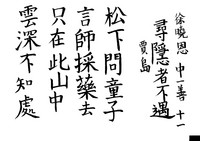 徐曉恩 中一善 十一
尋隱者不遇
賈島
松下問童子
言師採藥去
只在此山中
雲深不知處